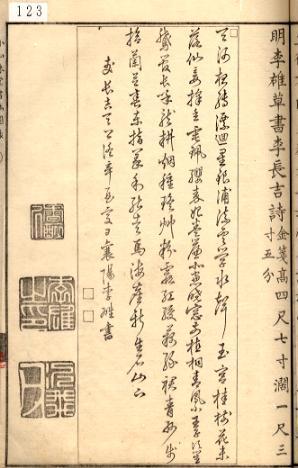 123
明李雄草書李長吉詩 金箋高四尺七寸濶一尺三寸五分
天河夜轉漂迴星銀浦流雲學水聲玉宮桂樹花未
落仙妾採香垂珮纓秦妃捲簾北窗曉窗前植桐青鳳小王子吹笙
鵝管長呼龍耕烟種瑤艸粉霞紅綬藕絲裙青洲步
拾蘭苕春東指羲和能走馬海塵新生石山下
李長吉天上謠辛夏日襄陽李雄書
李雄之印